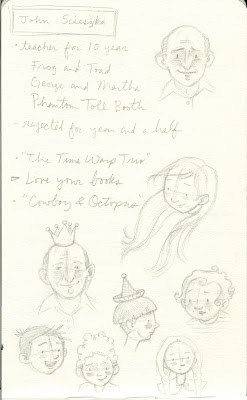 John Scieszka
• teacher for 10 year
Frog and Toad
George and Martha
Phantom Toll Booth
- rejected for year and a half
• "The Time Warp Trio"
Love your books
• "Cowboy & Octopus"